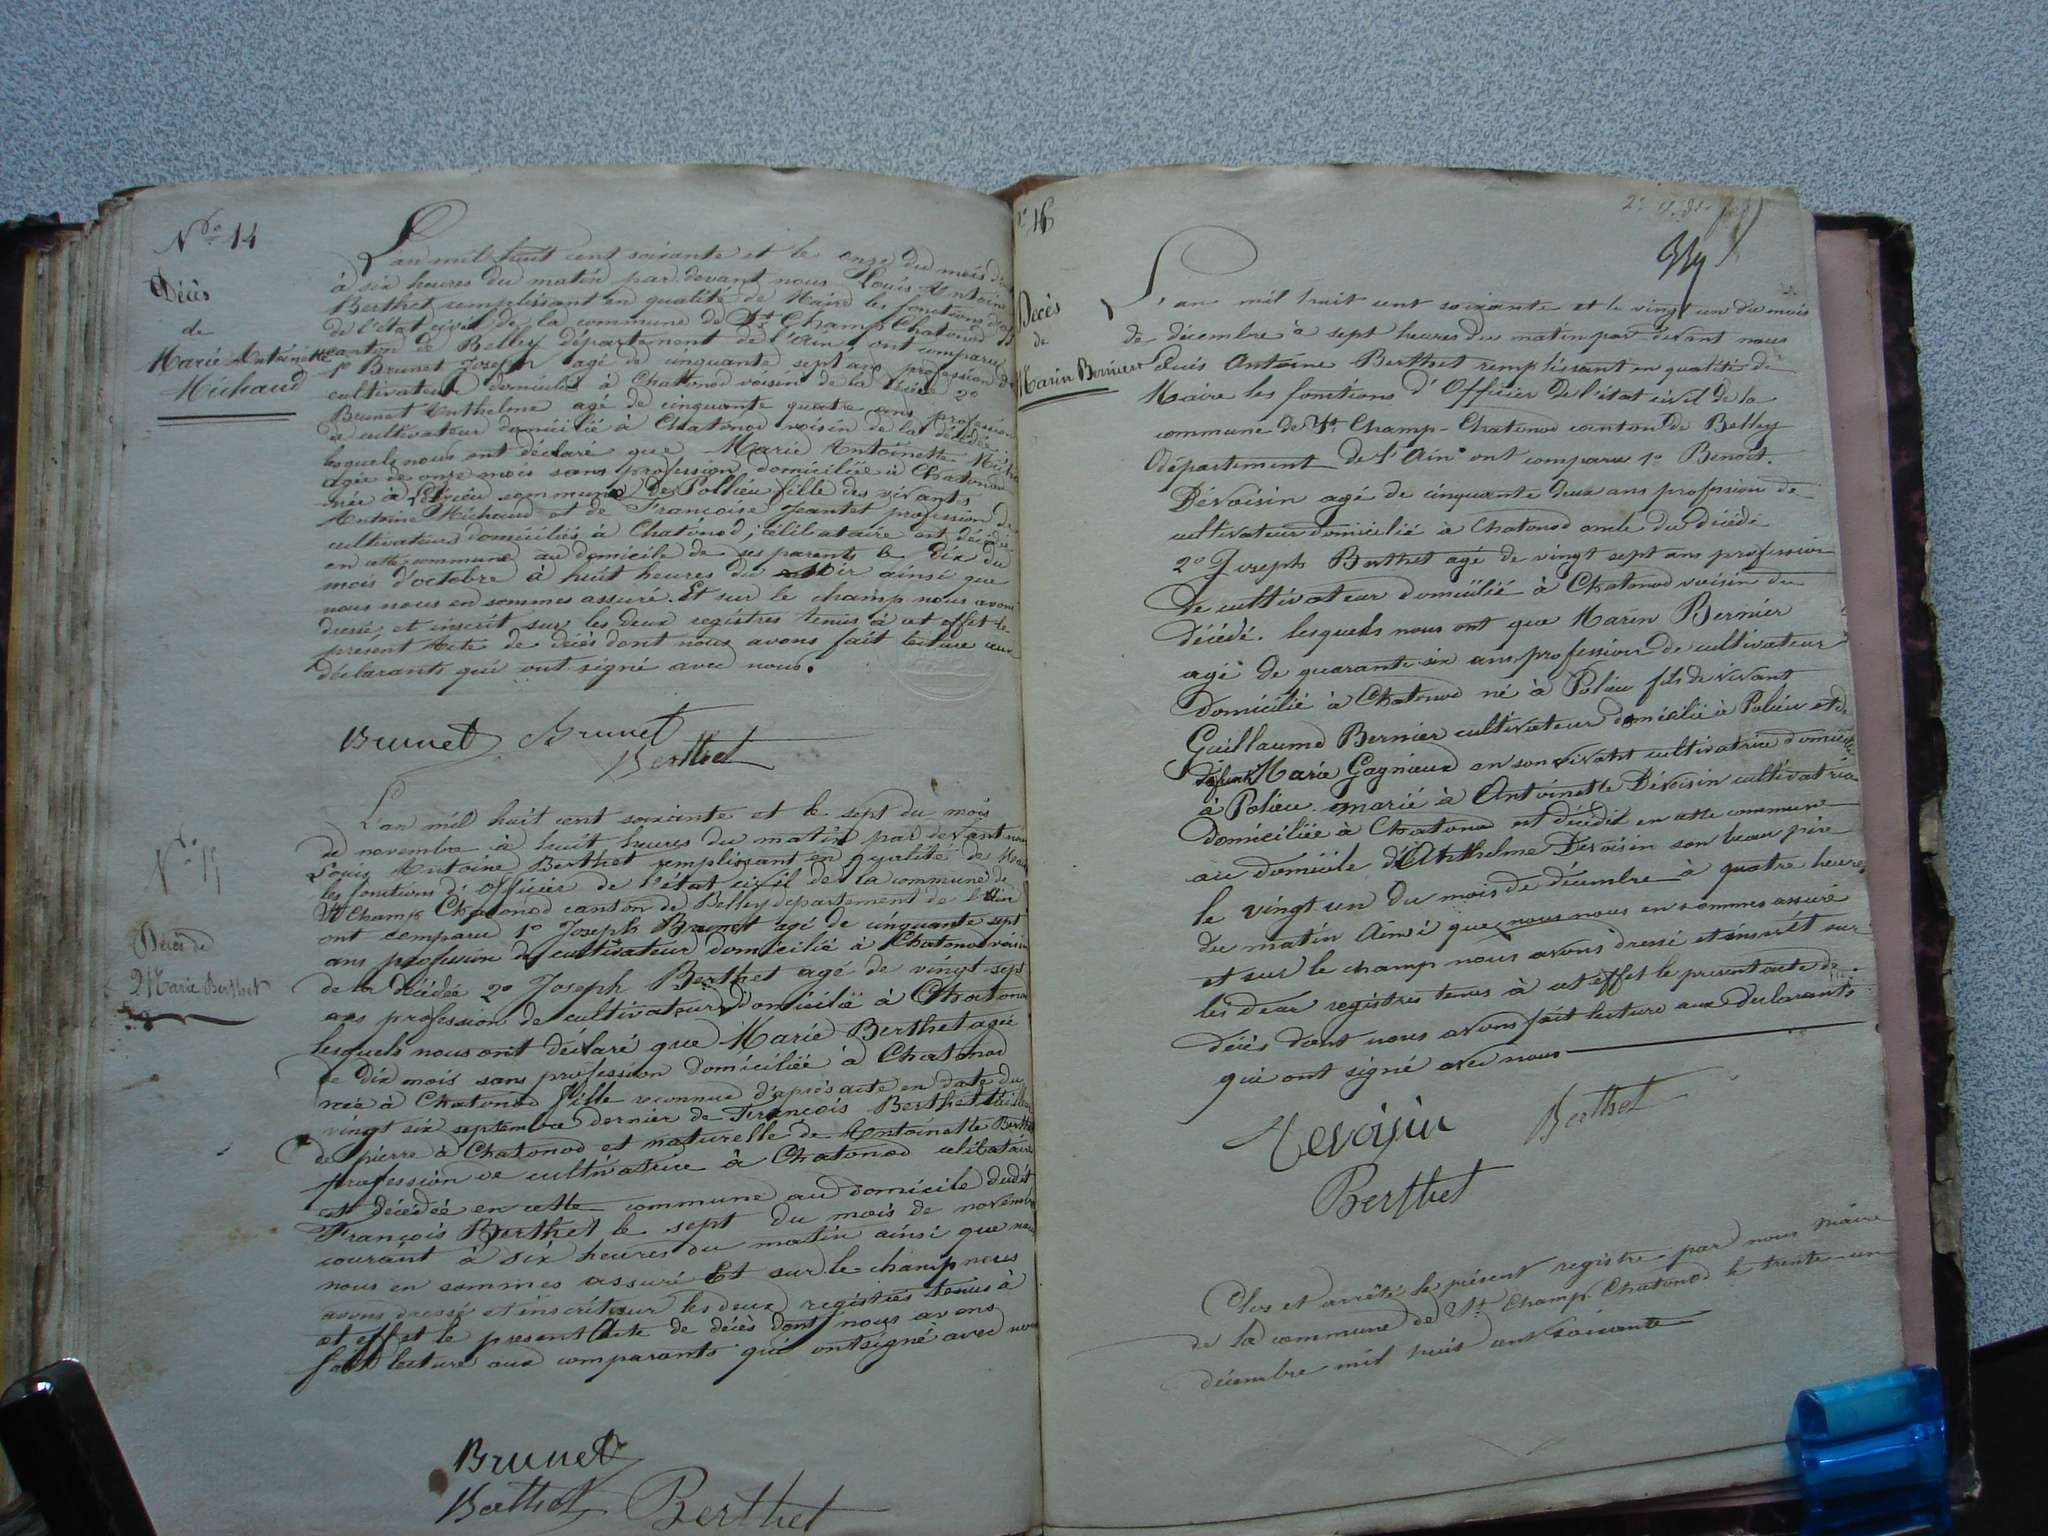 Nº 14
Décès
de
Marie Antoinette
Michaud
L'an mil huit cent soixante et le onze du mois
à six heures du matin par devant nous Louis Antoine
Berthet remplissant en qualité de Maire les fonctions
de l'état civil de la commune de St Champ Chatonod
canton de Belley département de l'Ain, ont comparu
1º Brunet Joseph agé de cinquante sept ans profession de
cultivateur domicilié à Chatonod voisin de la décédée 2º
Brunet Anthelme agé de cinquante quatre ans profession
de cultivateur domicilié à Chatonod voisin de la décédée
lesquels nous ont déclaré que Marie Antoinette
agée de onze mois sans profession domiciliée à Chatonod
née à commune de Pollieu fille des vivants
Antoine Michaud et de Francoise Jeantet profession de
cultivateurs domiciliés à Chatonod, célibataire est décédée
en cette commune au domicile de ses parents le dix du
mois d'octobre à huit heures du soir ainsi que
nous nous en sommes assuré. Et sur le champ nous avons
dressé, et inscrit sur les deux registres tenus à cet effet le
présent Acte de décès dont nous avons fait lecture aux
déclarants qui ont signé avec nous.
Brunet Brunet
Berthet
Nº 15
Décès de
Marie Berthet
L'an mil huit cent soixante et le sept du mois
de novembre à huit heures du matin par devant nous
Louis Antoine Berthet remplissant en qualité de Maire
les fonctions d'officier de l'état civil de la commune de
St Champ Chatonod canton de Belley département de l'Ain
ont comparu 1º Joseph Brunet agé de cinquante sept
ans profession de cultivateur domicilié à Chatonod voisin
de la décédée 2º Joseph Berthet agé de vingt sept
ans profession de cultivateur domicilié à Chatonod
lesquels nous ont déclaré que Marie Berthet agée
de dix mois sans profession domiciliée à Chatonod
née à Chatonod fille reconnue d'après acte en date du
vingt six septembre dernier de François Berthet tailleur
de pierre à Chatonod et naturelle de Antoinette Berthet
profession de cultivatrice à Chatonod célibataire
est décédée en cette commune au domicile dudit
François Berthet le sept du mois de novembre
courant à six heures du matin ainsi que nous
nous en sommes assuré Et sur le champ nous
avons dressé et inscrit sur les deux registres tenus à
cet effet le present Acte de décès dont nous avons
fait lecture aux comparants qui ont signé avec nous
Brunet
Berthet Berthet
16
Décès
de
Marin Bernier
L'an mil huit cent soixante et le vingt un du mois
de décembre à sept heures du matin par devant nous
Louis Antoine Berthet remplissant en qualité de
Maire les fonctions d'Officier de l'état civil de la
commune de St Champ-Chatonod canton de Belley
département de l'Ain ont comparu 1º Benoit
Dévoisin agé de cinquante deux ans profession de
cultivateur domicilié à Chatonod oncle du décédé
2º Joseph Berthet agé de vingt sept ans profession
de cultivateur domicilié à Chatonod voisin du
décédé. lesquels nous ont que Marin Bernier
agé de quarante six ans profession de cultivateur
domicilié à Chatonod né à Polieu fils de vivant
Guillaume Bernier cultivateur domicilié à Polieu et de
défunte Marie Gagnieux en son vivant cultivatrice domiciliée
à Polieu marié à Antoinette Dévoisin cultivatrice
domiciliée à Chatonod est décédé en cette commune
au domicile d'Anthelme Dévoisin son beau père
le vingt un du mois de décembre à quatre heures
du matin Ainsi que nous nous en sommes assuré
et sur le champ nous avons dressé et inscrit sur
les deux registres tenus à cet effet le present acte de
décès dont nous avons fait lecture aux déclarants
qui ont signé avec nous
Devoisin Berthet
Berthet
Clos et arrêté le présent registre par nous maire
de la commune de St Champ Chatonod le trente un
décembre mil huit cent soixante